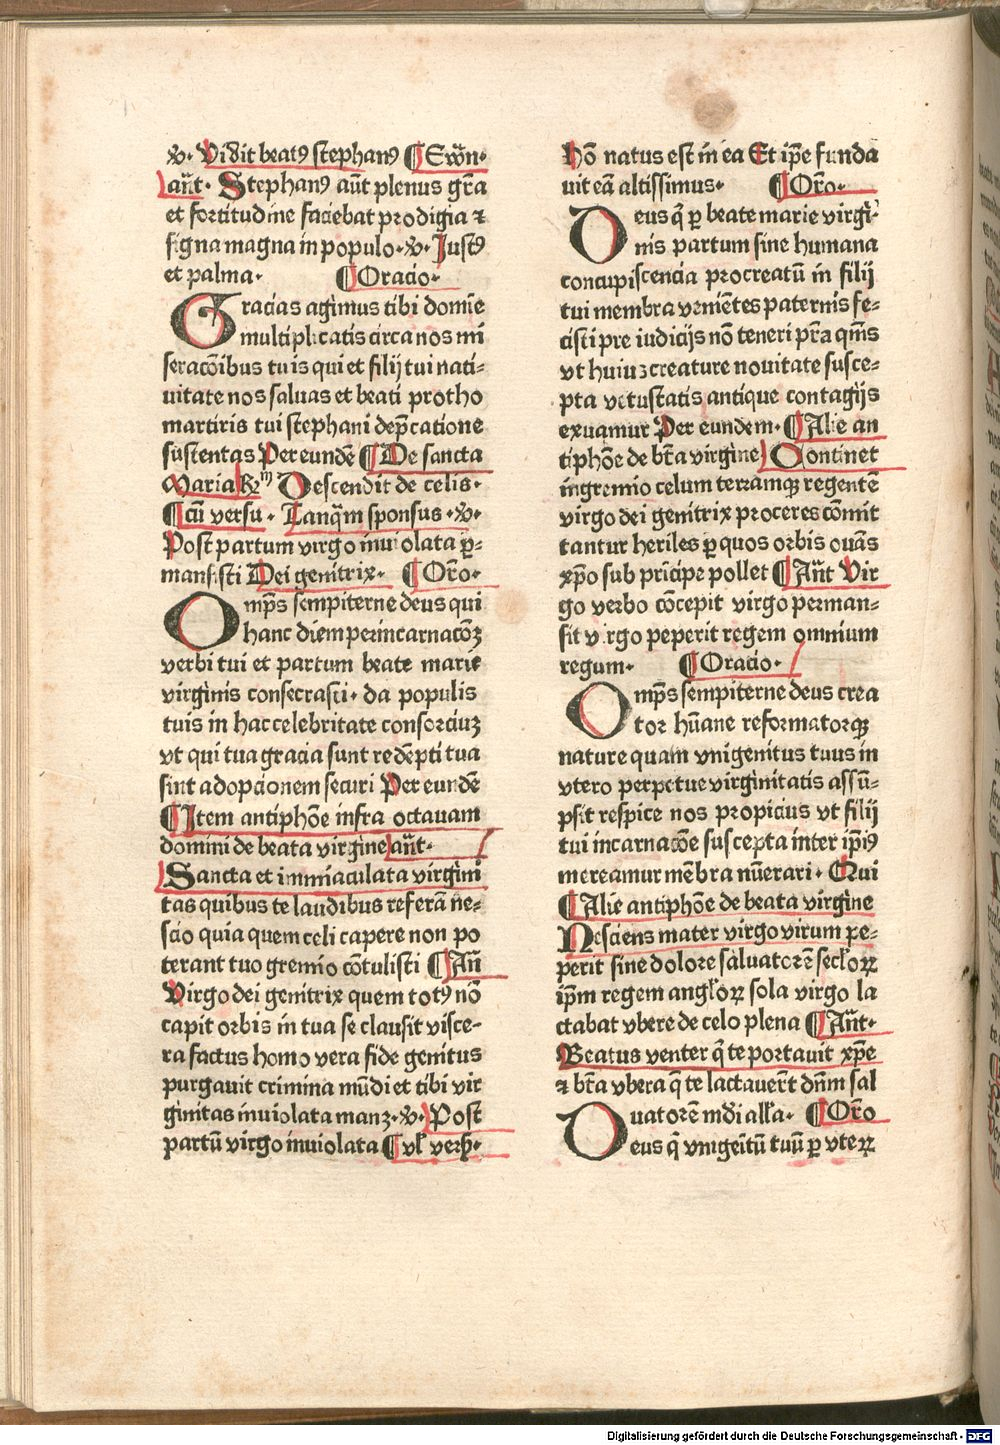 v. Vidit beatꝰ stephanꝰ ¶ Ewn̄.
an̄t. Stephanꝰ aūt plenus gr̄a
et fortitudine faciebat prodigia ⁊
signa magna in populo. v. Justꝰ
et palma. ¶ Oracio.
Gracias agimus tibi domīe
multiplicatis circa nos mi
seracōibus tuis qui et filij tui nati-
uitate nos saluas et beati protho
martiris tui stephani dep̄catione
sustentas Per eundē ¶ De sancta
Maria Rm̄ Descendit de celis.
¶ cū versu. Tanq̄m sponsus. v.
Post partum virgo inuiolata ꝑ-
mansisti Dei genitrix. ¶ Oro.
Omp̄s sempiterne deus qui
hanc diem per incarnacōꝫ
verbi tui et partum beate marie
virginis consecrasti. da populis
tuis in hac celebritate consorciuꝫ
vt qui tua gracia sunt redēpti tua
sint adopcionem securi Per eundē
¶ Item antiphōe infra octauam
domini de beata virgine an̄t.
Sancta et immaculata virgini
tas quibus te laudibus referā ne-
scio quia quem celi capere non po
terant tuo gremio cōtulisti ¶ An̄
Virgo dei genitrix quem totꝰ nō
capit orbis in tua se clausit visce-
ra factus homo vera fide genitus
purgauit crimina mūdi et tibi vir
ginitas inuiolata manꝫ. v. Post
partū virgo inuiolata ¶ vl̄ vers.
hō natus est in ea Et ip̄e funda
uit eā altissimus. ¶ Oro.
Deus q̄ ꝑ beate marie virgi-
nis partum sine humana
concupiscencia procreatū in filij
tui membra venientes paternis fe-
cisti pre iudicijs nō teneri p̄ra qm̄s
vt huiuꝫ creature nouitate susce-
pta vetustatis antique contagijs
exuamur Per eundem. ¶ Alie an
tiphōe de bt̄a virgine Continet
in gremio celum terramqꝫ regentē
virgo dei genitrix proceres cōmit
tantur heriles ꝑ quos orbis ouās
xp̄o sub pricīpe pollet ¶ An̄t Vir
go verbo cōcepit virgo perman-
sit virgo peperit regem omnium
regum. ¶ Oracio.
Omp̄s sempiterne deus crea
tor hūane reformatorqꝫ
nature quam vnigenitus tuus in
vtero perpetue virginitatis assū-
psit respice nos propicius vt filij
tui incarnacōe suscepta inter ip̄iꝰ
mereamur mēbra nūerari. Qui
¶ Alie antiphōe de beata virgine
Nesciens mater virgo virum pe-
perit sine dolore saluatorē secl̄oꝝ
ip̄m regem angl̄oꝝ sola virgo la
ctabat vbere de celo plena ¶ An̄t.
Beatus venter q̄ te portauit xp̄e
⁊ bt̄a vbera q̄ te lactauer̄t dn̄m sal
uatorem mdi all̄a. ¶ Oro
Deus q̄ vnigeitū tuū ꝑ vteꝝ
Digitalisierung gefördert durch die Deutsche Forschungsgemeinschaft - DFG